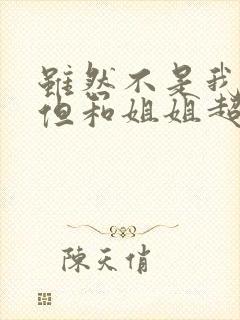 雖然不是我
但和姐姐超
陳天俏